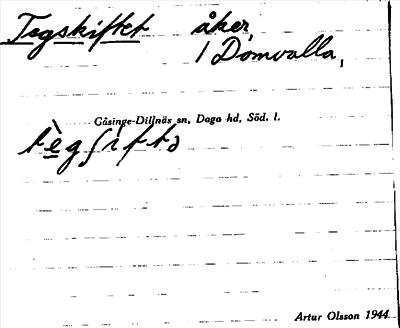 Tegskiftet åker,
/ Domvalla,
Gåsinge-Dillnäs sn, Daga hd, Söd. l.
Artur Olsson 1944